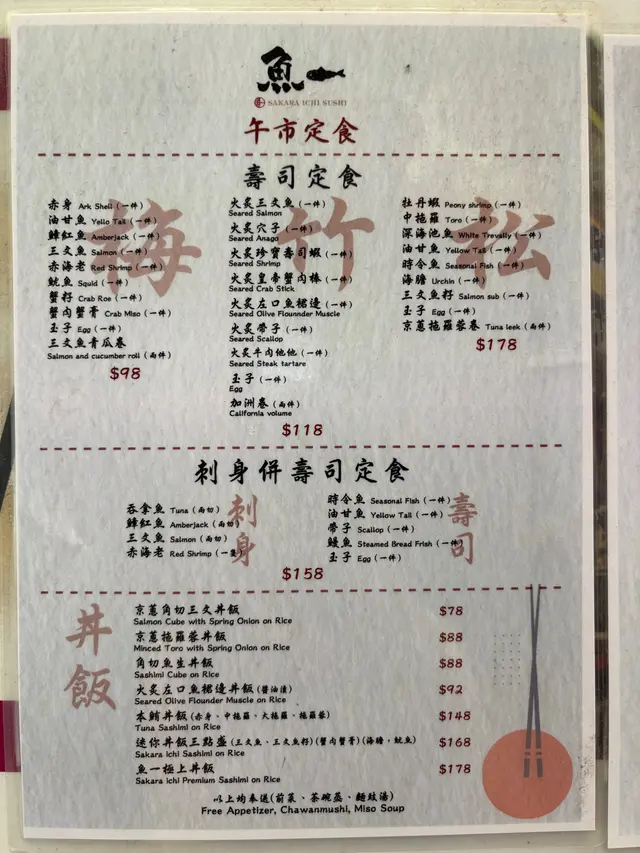 魚一
SAKARA ICHI SUSHI
午市定食
壽司定食
梅
赤身 Ark Shell (一件)
油甘魚 Yello Tail (一件)
鰤魟魚 Amberjack (一件)
三文魚 Salmon (一件)
赤海老 Red Shrimp (一件)
魷魚 Squid (一件)
蟹籽 Crab Roe (一件)
蟹肉蟹膏 Crab Miso (一件)
玉子 Egg (一件)
三文魚青瓜卷
Salmon and cucumber roll (兩件)
$98
竹
火炙三文魚 (一件)
Seared Salmon
火炙穴子 (一件)
Seared Anago
火炙珍寶壽司蝦 (一件)
Seared Shrimp
火炙皇帝蟹肉棒 (一件)
Seared Crab Stick
火炙左口魚裙邊 (一件)
Seared Olive Flounnder Muscle
火炙帶子 (一件)
Seared Scallop
火炙牛肉他他 (一件)
Seared Steak tartare
玉子 (一件)
Egg
加洲卷 (兩件)
California volume
$118
松
牡丹蝦 Peony shrimp (一件)
中拖羅 Toro (一件)
深海池魚 White Trevally (一件)
油甘魚 Yellow Tail (一件)
時令魚 Seasonal Fish (一件)
海膽 Urchin (一件)
三文魚籽 Salmon sub (一件)
玉子 Egg (一件)
京蔥拖羅蓉卷 Tuna leek (兩件)
$178
刺身併壽司定食
刺身
吞拿魚 Tuna (兩切)
鰤魟魚 Amberjack (兩切)
三文魚 Salmon (兩切)
赤海老 Red Shrimp (一隻)
壽司
時令魚 Seasonal Fish (一件)
油甘魚 Yellow Tail (一件)
帶子 Scallop (一件)
鰻魚 Steamed Bread Frish (一件)
玉子 Egg (一件)
$158
丼飯
京蔥角切三文丼飯 $78
Salmon Cube with Spring Onion on Rice
京蔥拖羅蓉丼飯 $88
Minced Toro with Spring Onion on Rice
角切魚生丼飯 $88
Sashimi Cube on Rice
火炙左口魚裙邊丼飯 (醬油漬) $92
Seared Olive Flounder Muscle on Rice
本鮪丼飯 (赤身、中拖羅、大拖羅、拖羅蓉) $148
Tuna Sashimi on Rice
迷你丼飯三點盛 (三文魚、三文魚籽) (蟹肉蟹膏) (海膽，魷魚) $168
Sakara ichi Sashimi on Rice
魚一極上丼飯 $178
Sakara ichi Premium Sashimi on Rice
以上均奉送 (前菜、茶碗蒸、麵豉湯)
Free Appetizer, Chawanmushi, Miso Soup